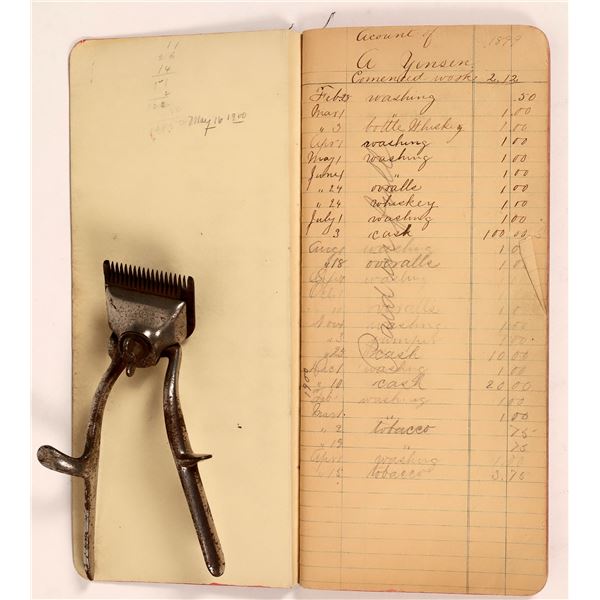 11
26
14
May 16 1900
Acount of 1899
A Yonsen
Comenced work 2.12
Feb 28 washing .50
Mar 1 " 1.00
" 3 bottle Whiskey 1.00
Apr 1 washing 1.00
May 1 washing 1.00
June 1 " 1.00
" 24 ovralls 1.00
" 24 whiskey 1.00
July 1 washing 1.00
3 cash 100.00
Aug washing 1.0
" 18 overalls 1.0
Sept washing 1.0
Oct 1
10 overalls 1.0
Nov washing 1.00
" 25 cash 10.00
Dec 1 washing 1.00
1900
" 10 cash 20.00
Feb washing 1.00
Mar 1 " 1.00
" 2 tobacco 75
" 19 " 75
Apr 1 washing 1.00
" 15 tobacco 3.75